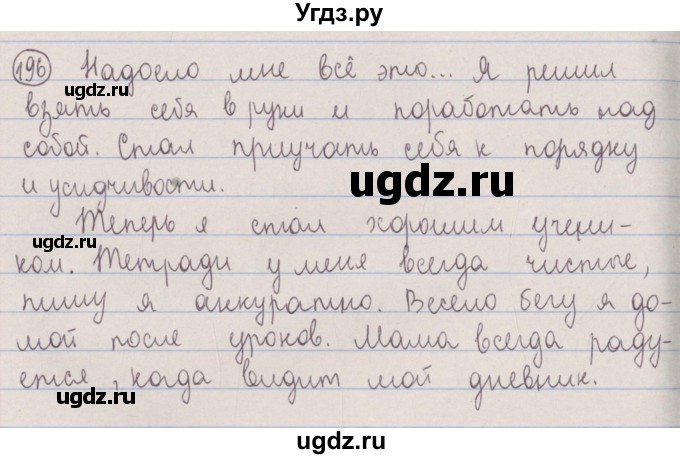 Угдз.ру
196 Надоело мне всё это... Я решил
взять себя в руки и поработать над
собой. Стал приучать себя к порядку
и усидчивости.
ugdz.ru
Теперь я стал хорошим учени-
ком. Тетради у меня всегда чистые,
пишу я аккуратно. Весело бегу я до-
мой после уроков. Мама всегда раду-
ется, когда видит мой дневник.
ugdz.ru
ugdz.ru
ugdz.ru
ugdz.ru
ugdz.ru
ugdz.ru
ugdz.ru
ugdz.ru